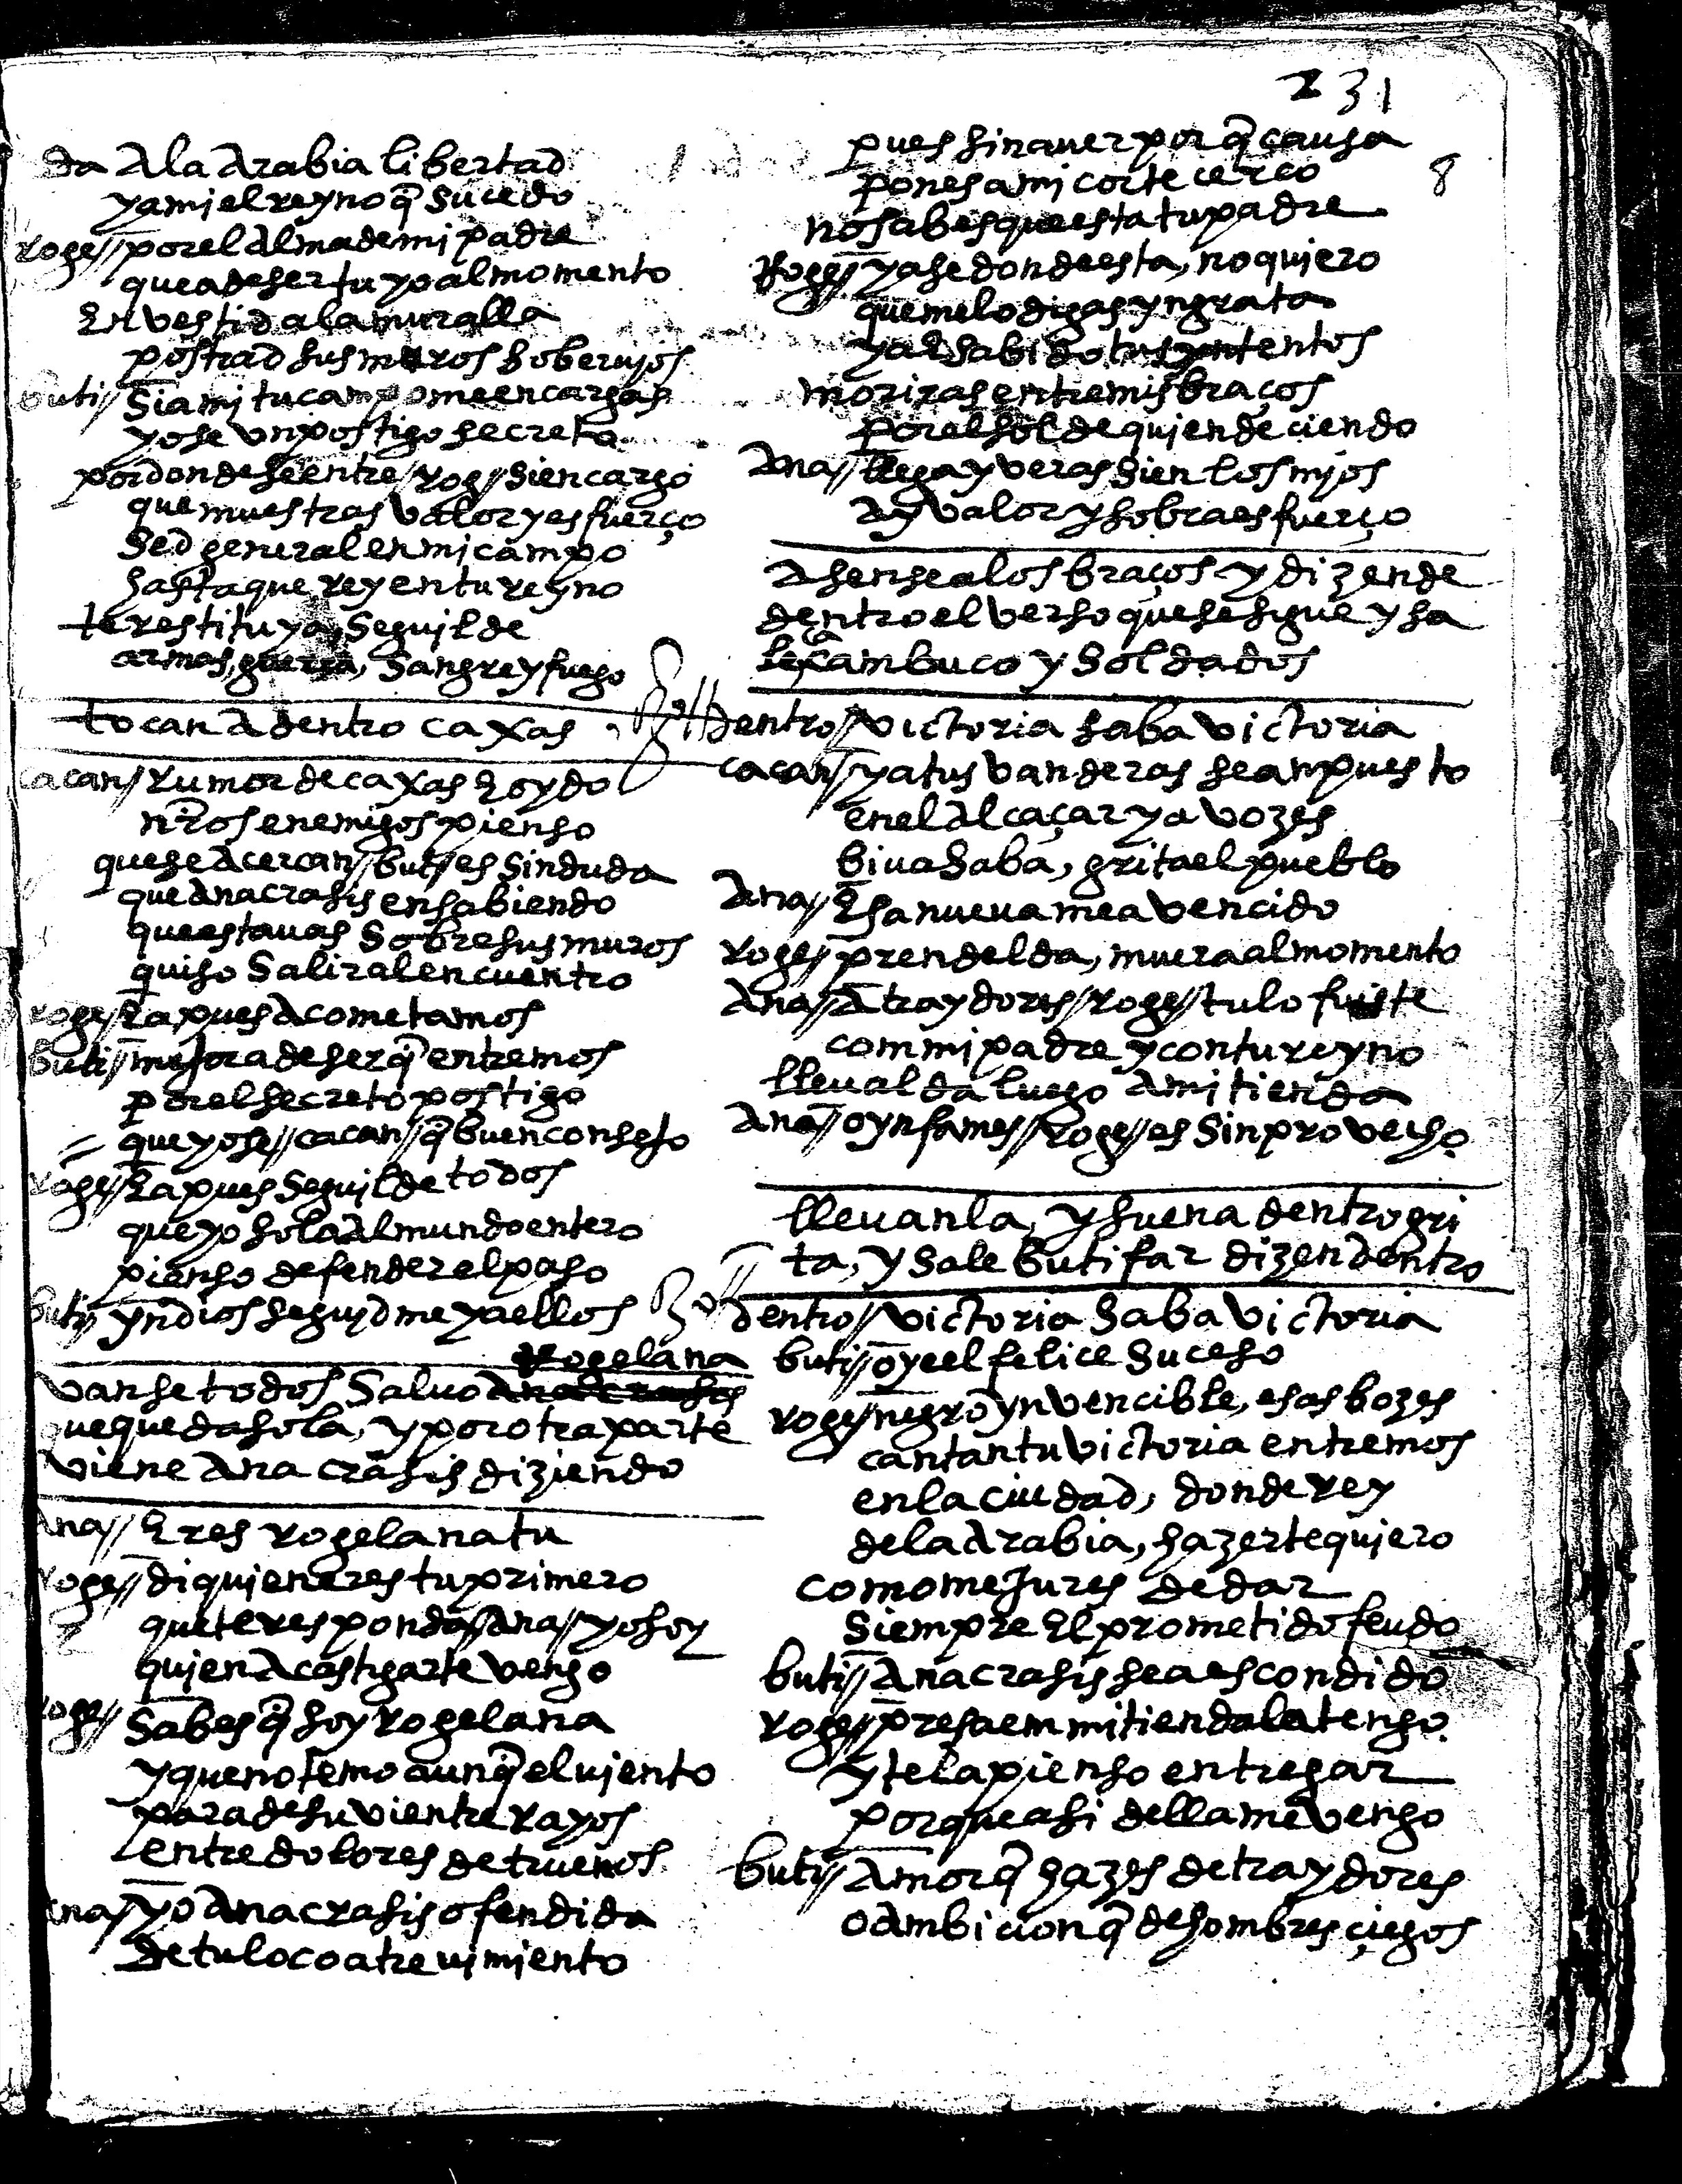 231
8
da A la Arabia libertad
y a mi el reyno q̃ sucedo
roge// por el Alma de mi padre
que a de ser tuyo al momento
Envestid a la muralla
postrad sus muros sobervios
buti// Si a mi tu campo me encargas
yo se vn postigo secreto
por donde se entre // rog// Si encargo
que muestras valor y esfuerço
Sed general en mi campo
hasta que rey en tu reyno
te restituya, Seguilde
armas, guerra, Sangre y fuego
tocan A dentro caxas
cacan// rumor de caxas E oydo
nr̃os enemigos pienso
que se Acercan // buti// es Sin duda
que Anacrasis en sabiendo
que estauas Sobre sus muros
quiso Salir al encuentro
roge// Ea pues Acometamos
buti// mejor a de ser q̃ entremos
por el secreto postigo
que yo se // cacan// q̃ buen consejo
roge// Ea pues Seguilde todos
que yo sola Al mundo entero
pienso defender el paso
buti// yndios seguidme y a ellos
Rogelana
vanse todos, Saluo Anacrasis
que queda sola, y por otra parte
viene Anacrasis diziendo
Ana// Eres rogelana tu
roge// di quien eres tu primero
que te responda // Ana// yo soy
quien A castigarte vengo
roge// Sabes q̃ soy rogelana
y que no temo aunq̃ el viento
para de su vientre rayos
entre dolores de truenos
Ana// yo Anacrasis ofendida
de tu loco atrevimiento
pues sin aver por q̃ causa
pones a mi corte cerco
no sabes que esta tu padre
Roge// ya se donde esta, no quiero
que me lo digas yngrata
ya E sabido tus yntentos
moriras entre mis braços
por el sol de quien deciendo
Ana// llega y veras Si en los mios
Ay valor y sobra esfuerço
Asense a los braços y dizen de
dentro el verso que se sigue y sa
le cacambuco y Soldados
dentro// victoria saba victoria
cacan// ya tus vanderas se an puesto
en el Alcaçar y a vozes
biua Saba, grita el pueblo
Ana// Esa nueva me a vencido
roge// prendelda, muera al momento
Ana// A traydores // roge// tu lo fuiste
com mi padre y con tu reyno
lleualda luego A mi tienda
Ana// o ynfames // roge// es Sin provecho
lleuanla, y suena dentro gri
ta, y Sale butifar dizen dentro
dentro// victoria Saba victoria
buti// oye el felice Suceso
roge// negro ynvencible, esas bozes
cantan tu victoria entremos
en la ciudad, donde rey
de la Arabia, hazerte quiero
como me jures de dar
Siempre El prometido feudo
buti// Anacrasis se a escondido
roge// presa em mi tienda la tengo
y te la pienso entregar
porque asi della me vengo
buti// Amor q̃ hazes de traydores
o Ambicion q̃ de hombres ciegos